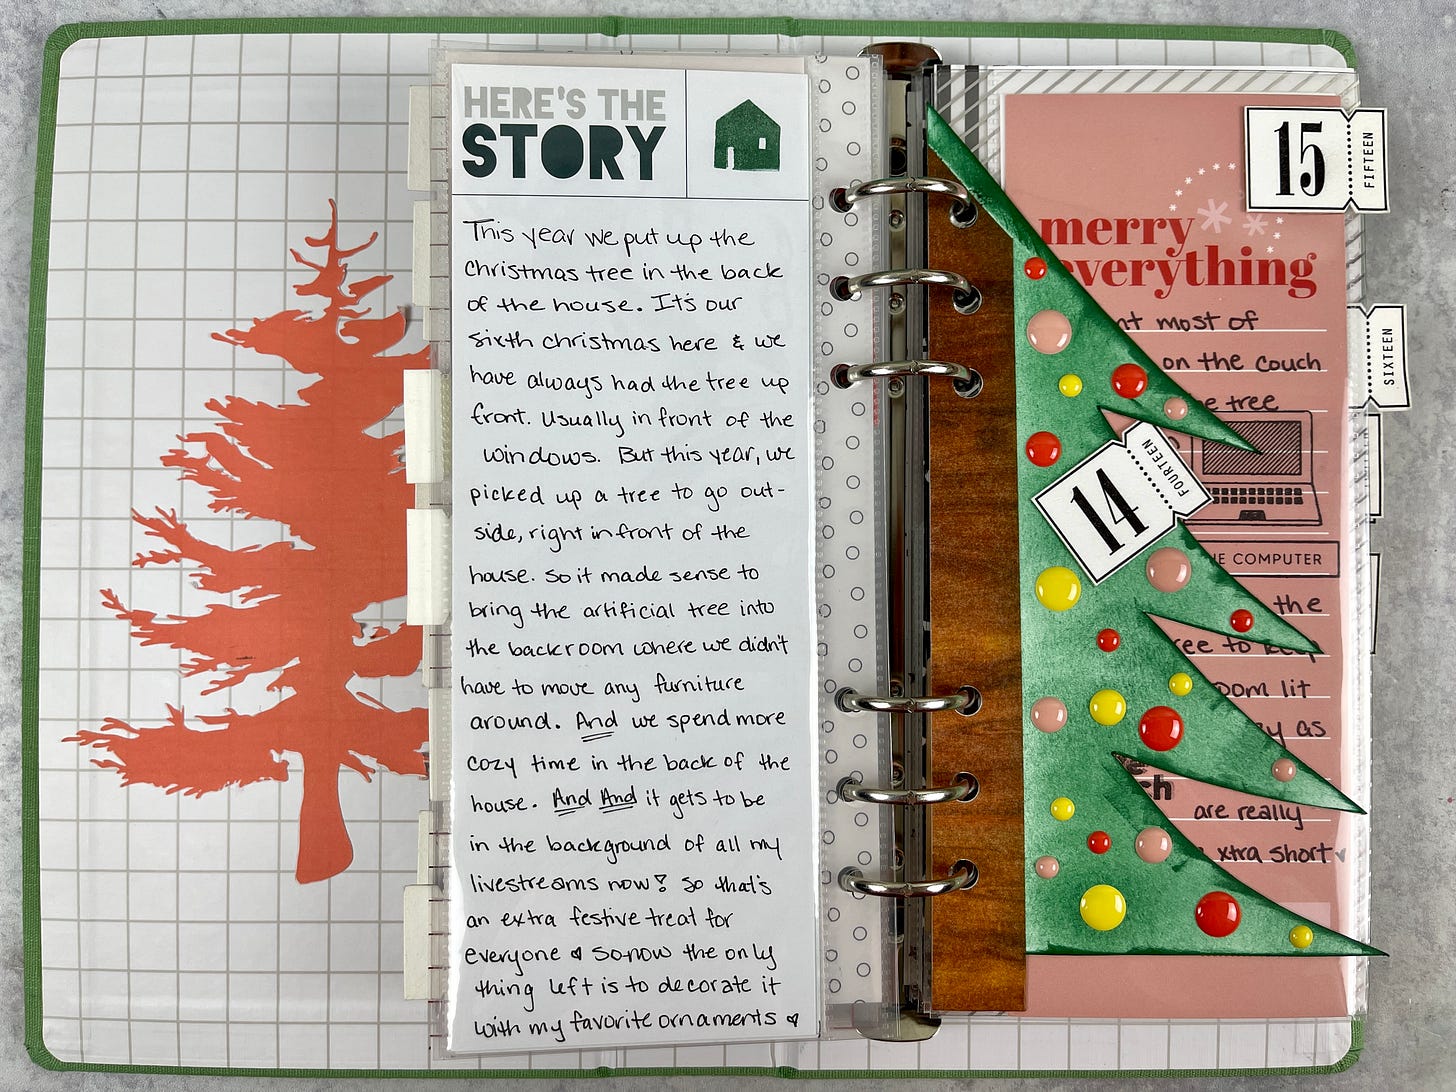 HERE'S THE
STORY
This year we put up the
christmas tree in the back
of the house. It's our
sixth christmas here & we
have always had the tree up
front. Usually in front of the
windows. But this year, we
picked up a tree to go out-
side, right in front of the
house. So it made sense to
bring the artificial tree into
the backroom where we didn't
have to move any furniture
around. And we spend more
cozy time in the back of the
house. And And it gets to be
in the background of all my
livestreams now! So that's
an extra festive treat for
everyone So now the only
thing left is to decorate it
with my favorite ornaments
15 FIFTEEN
merry
everything
nt most of
on the couch
e tree
SIXTEEN
14 FOURTEEN
E COMPUTER
the
ree to keep
oom lit
y as
are really
xtra short